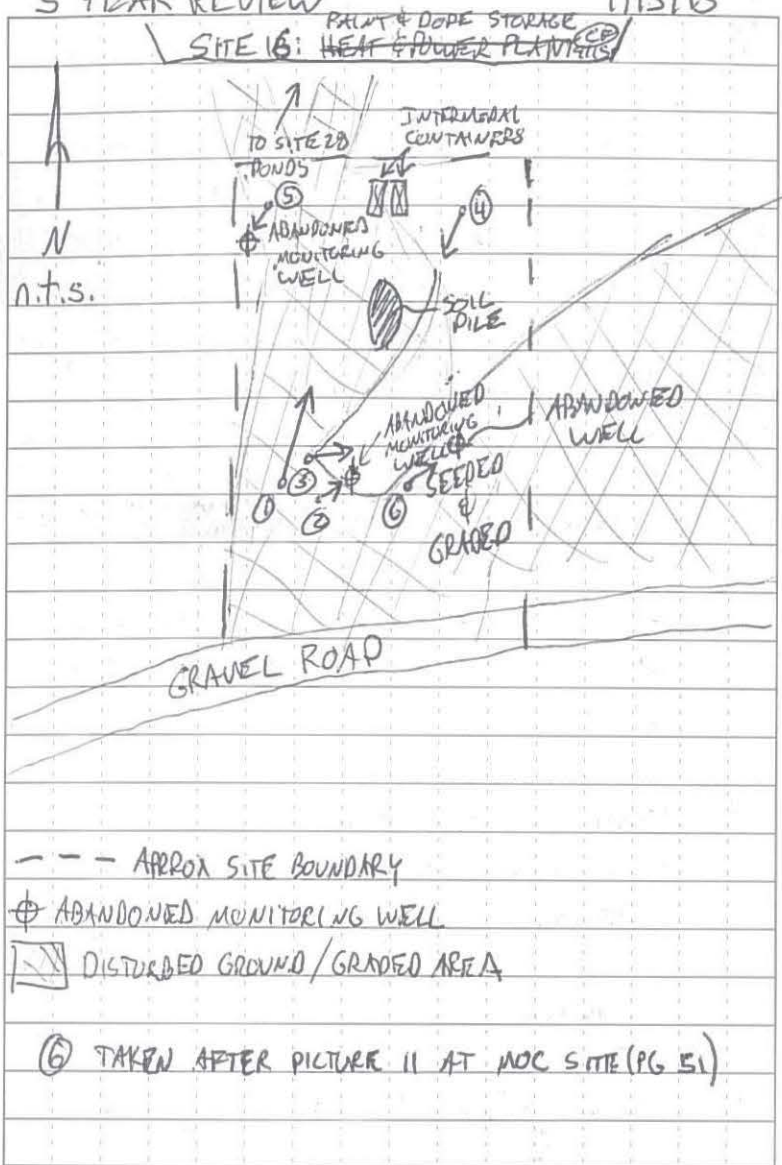 5 YEAR REVIEW
PAINT & DOPE STORAGE
SITE 16: HEAT & POWER PLANT
N
n.t.s.
TO SITE 28
PONDS
INTERMODAL
CONTAINERS
⑤
④
ABANDONED
MONITORING
WELL
SOIL
PILE
ABANDONED
MONITORING
WELL
ABANDONED
WELL
①
③
②
⑥
SEEDED
&
GRADED
GRAVEL ROAD
--- APPROX SITE BOUNDARY
ABANDONED MONITORING WELL
DISTURBED GROUND/GRADED AREA
⑥ TAKEN AFTER PICTURE 11 AT MOC SITE (PG 51)